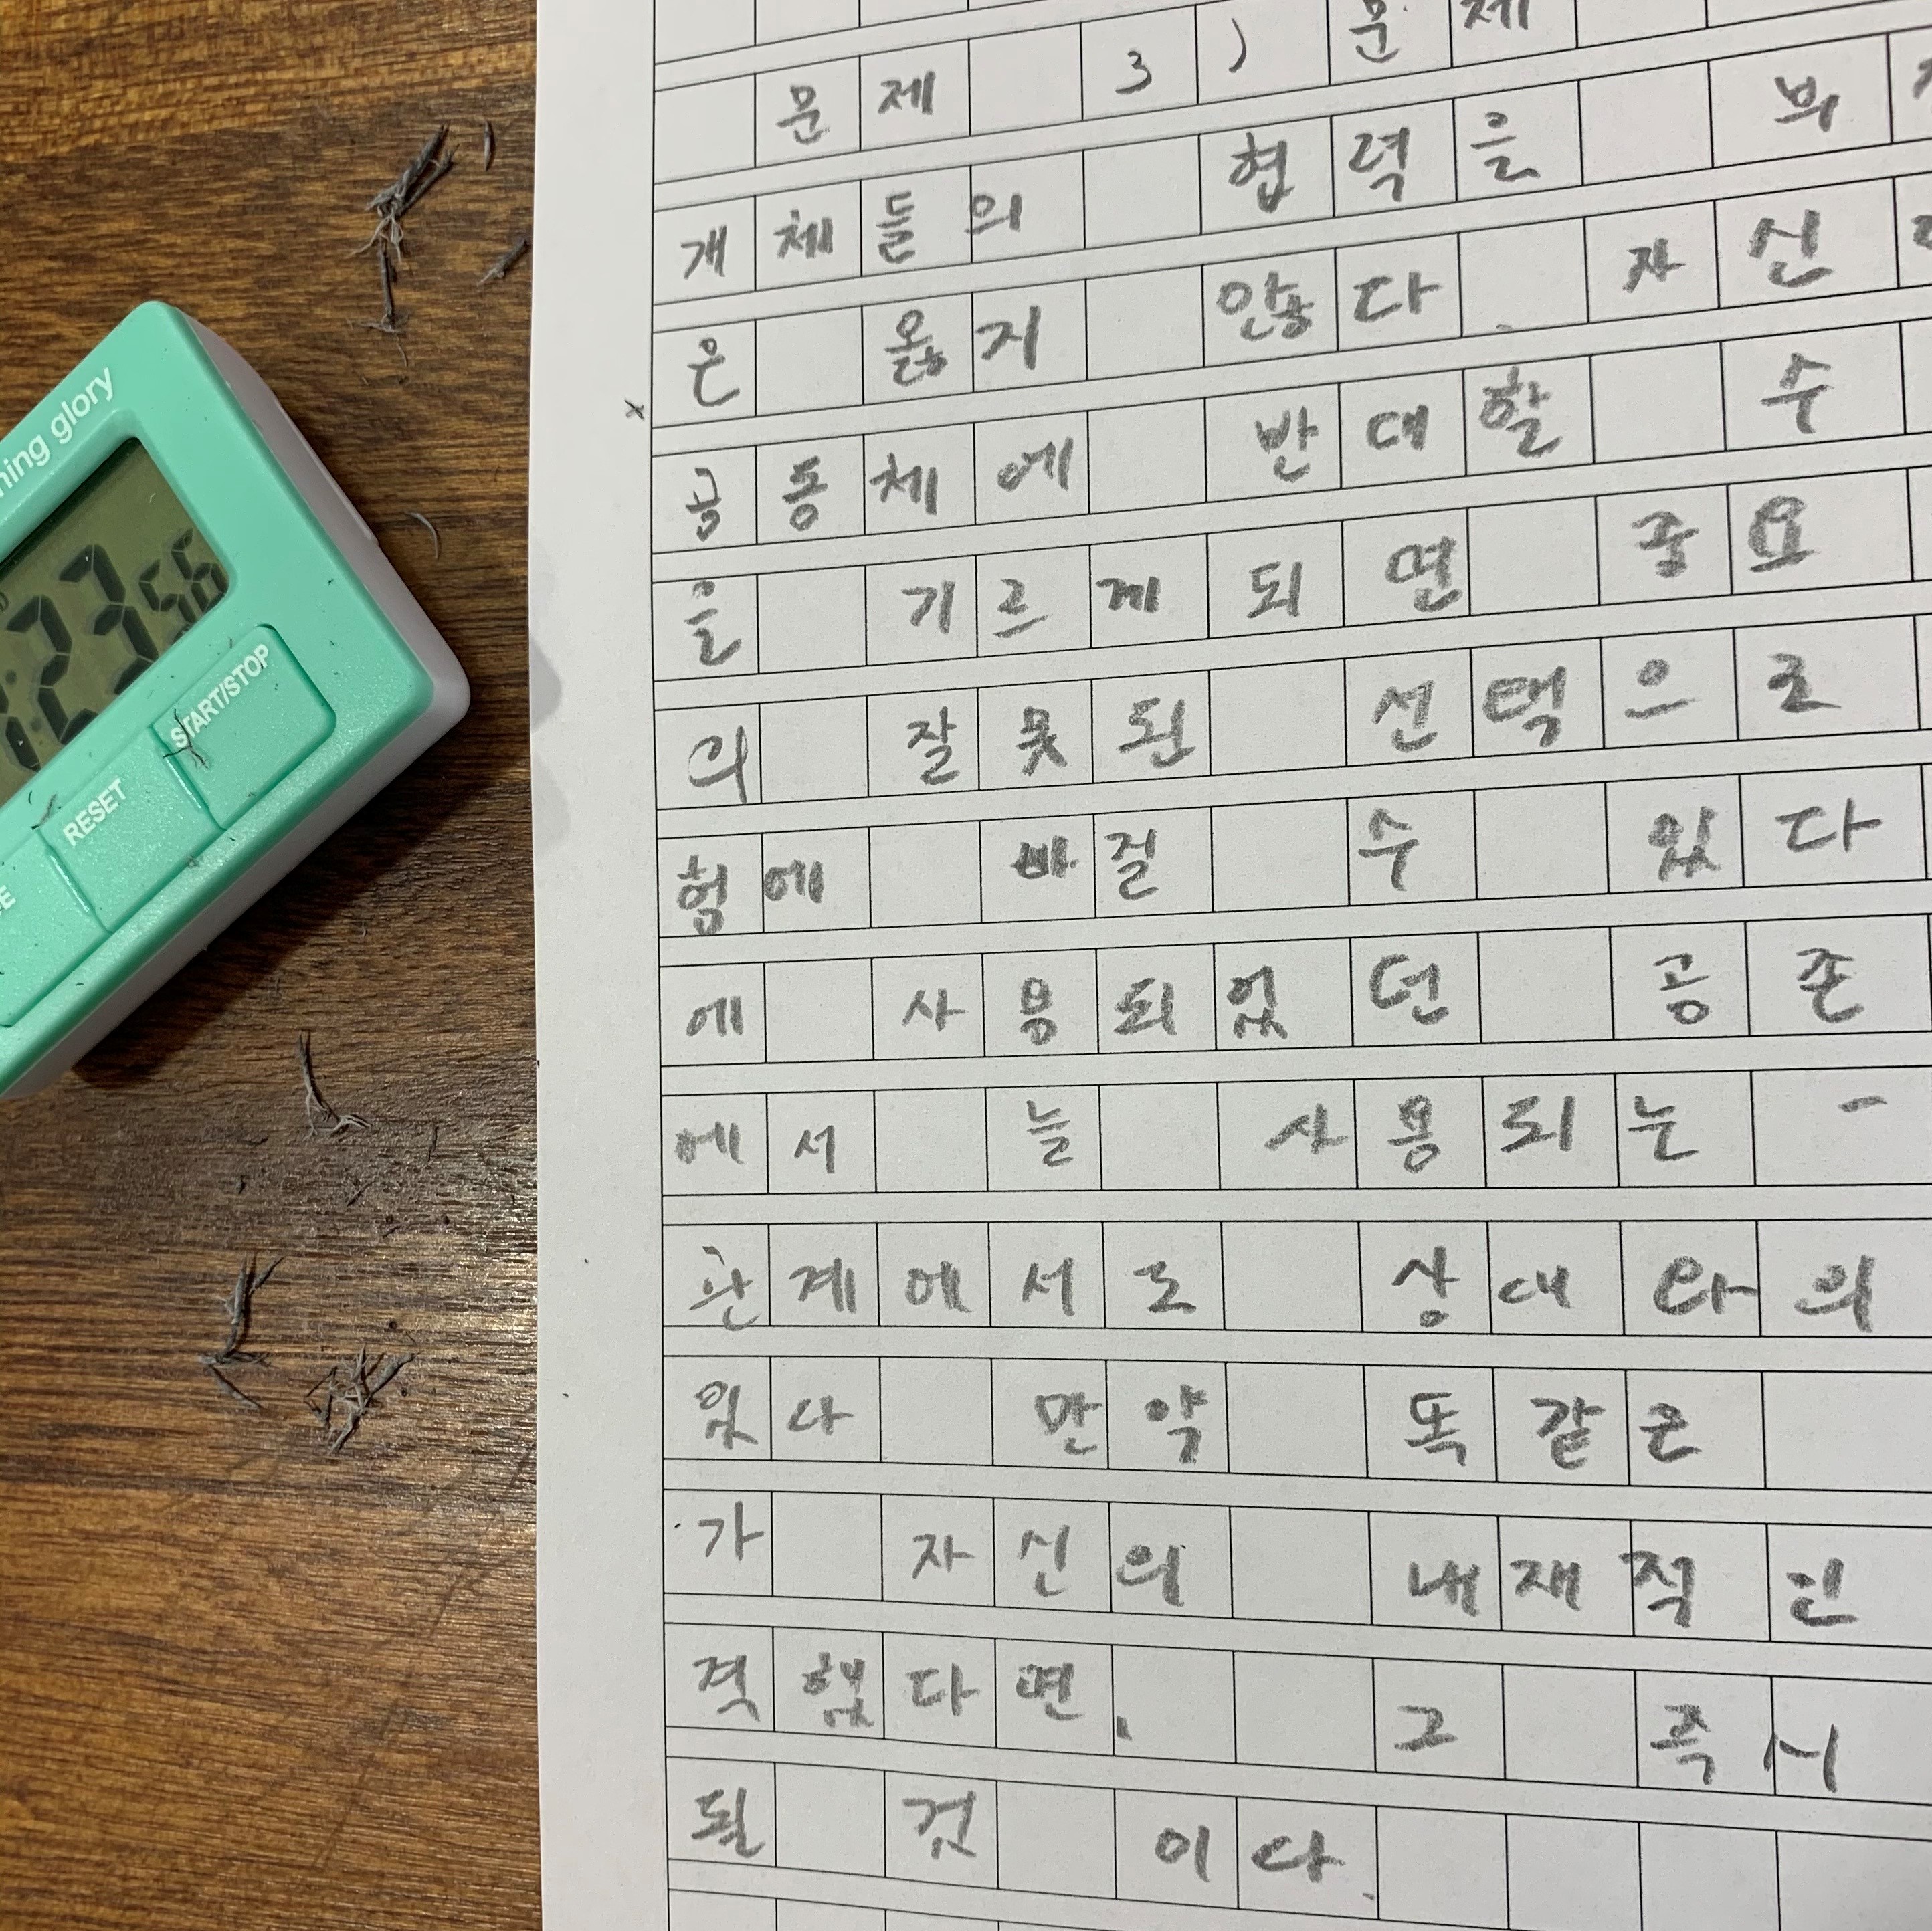 ning glory
23 56
START/STOP
RESET
E
문제 3) 문제
개체들의 협력을
은 옳지 않다. 자신
x
공동체에 반대할 수
을 기르게 되면 중요
의 잘못된 선택으로
험에 빠질 수 있다
에 사용되었던 공존
에서 늘 사용되는
관계에서도 상대와의
있다 만약 똑같은
가 자신의 내재적인
격했다면, 그 즉시
될 것이다.